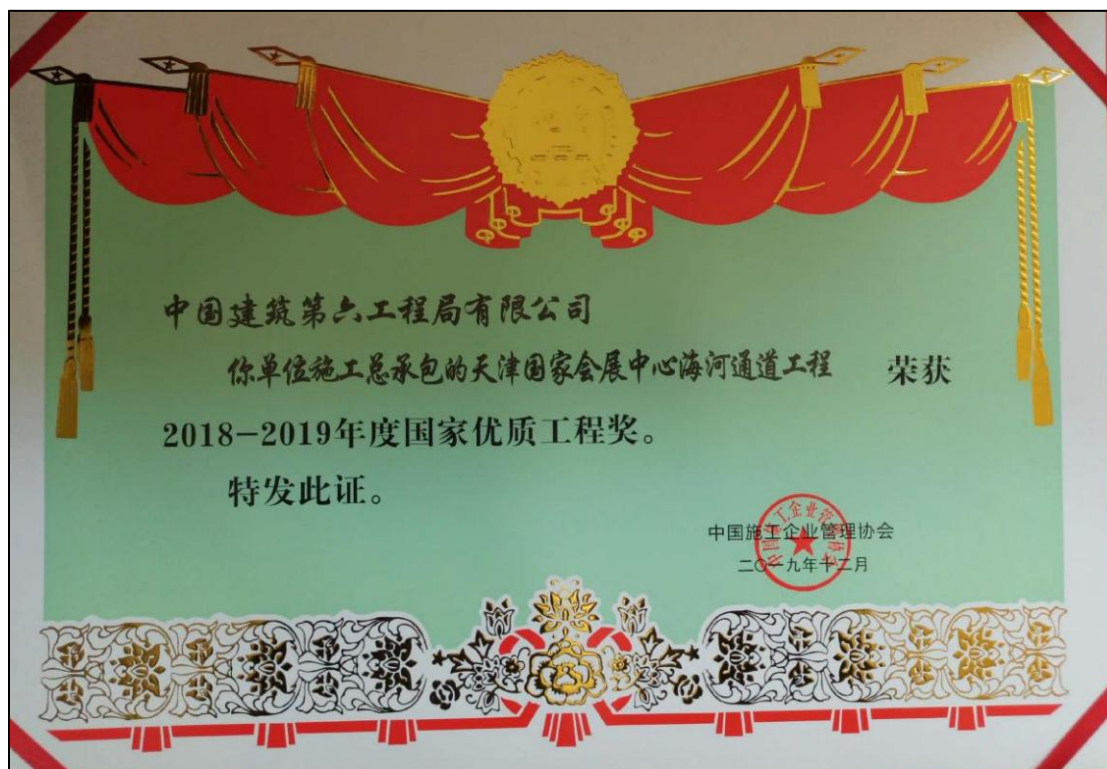 中国建筑第六工程局有限公司
你单位施工总承包的天津国家会展中心海河通道工程 荣获
2018-2019年度国家优质工程奖。
特发此证。
中国施工企业管理协会
二〇一九年十二月
中国施工企业管理协会